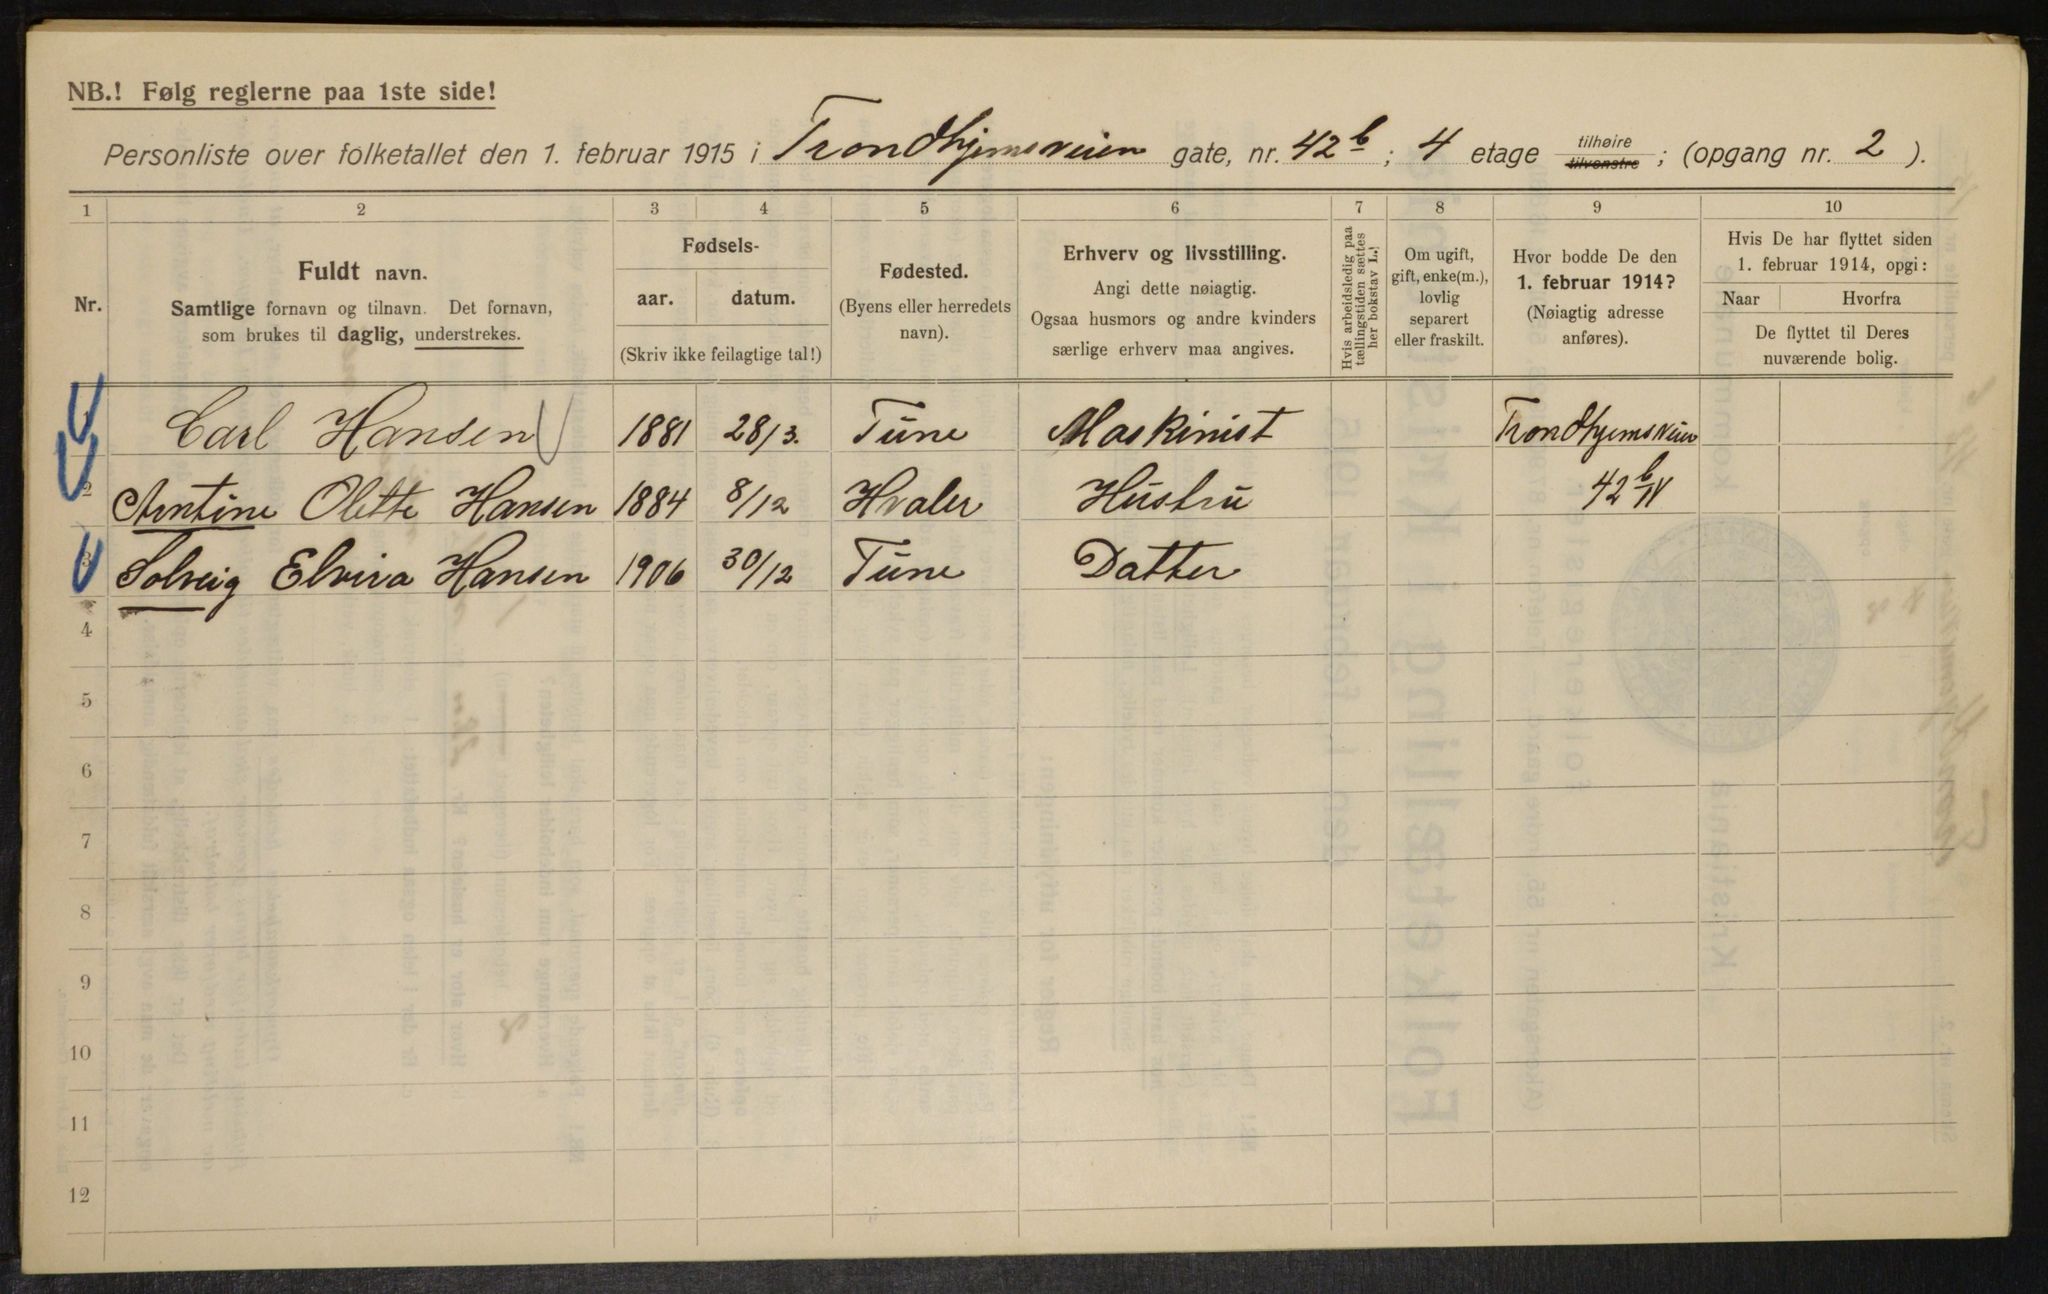 NB.! Følg reglerne paa 1ste side!
Personliste over folketallet den 1. februar 1915 i Trondhjemsveien gate, nr. 42b; 4 etage tilhøire tilvenstre; (opgang nr. 2).
1 2 3 4 5 6 7 8 9 10
Nr.
Fuldt navn.
Samtlige fornavn og tilnavn. Det fornavn,
som brukes til daglig, understrekes.
Fødsels-
aar. datum.
(Skriv ikke feilagtige tal!)
Fødested.
(Byens eller herredets
navn).
Erhverv og livsstilling.
Angi dette nøiagtig.
Ogsaa husmors og andre kvinders
særlige erhverv maa angives.
Hvis arbeidsledig paa
tællingstiden sættes
her bokstav L.!
Om ugift,
gift, enke(m.),
lovlig
separert
eller fraskilt.
Hvor bodde De den
1. februar 1914?
(Nøiagtig adresse
anføres).
Hvis De har flyttet siden
1. februar 1914, opgi:
Naar Hvorfra
De flyttet til Deres
nuværende bolig.
1 Carl Hansen 1881 28/3. Tune Maskinist Trondhjemsveien
2 Antine Olette Hansen 1884 8/12 Hvaler Hustru 42b/IV
3 Solveig Elvira Hansen 1906 30/12 Tune Datter
4
5
6
7
8
9
10
11
12